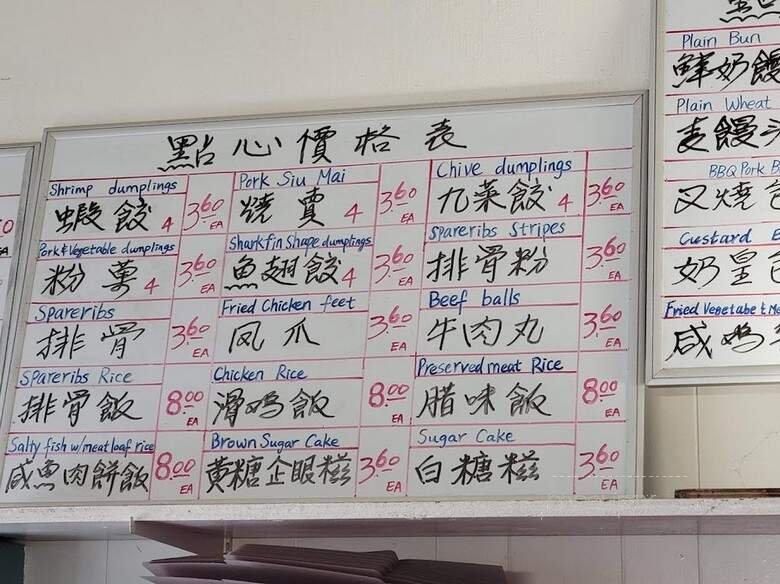 點心價格表
Shrimp dumplings
蝦餃 4
3.60 EA
Pork Siu Mai
燒賣 4
3.60 EA
Chive dumplings
九菜餃 4
3.60 EA
Pork & Vegetable dumplings
粉菓 4
3.60 EA
Sharkfin Shape dumplings
魚翅餃 4
3.60 EA
Spareribs Stripes
排骨粉
3.60 EA
Spareribs
排骨
3.60 EA
Fried Chicken feet
凤爪
3.60 EA
Beef balls
牛肉丸
3.60 EA
Spareribs Rice
排骨飯
8.00 EA
Chicken Rice
滑鸡飯
8.00 EA
Preserved meat Rice
腊味飯
8.00 EA
Salty fish w/ meat loaf rice
咸魚肉餅飯
8.00 EA
Brown Sugar Cake
黄糖企眼糍
3.60 EA
Sugar Cake
白糖糍
3.60 EA
Plain Bun
鮮奶饅
Plain Wheat
麦饅头
BBQ Pork B
叉燒包
Custard B
奶皇包
Fried Vegetabe & Me
咸鸡
EA